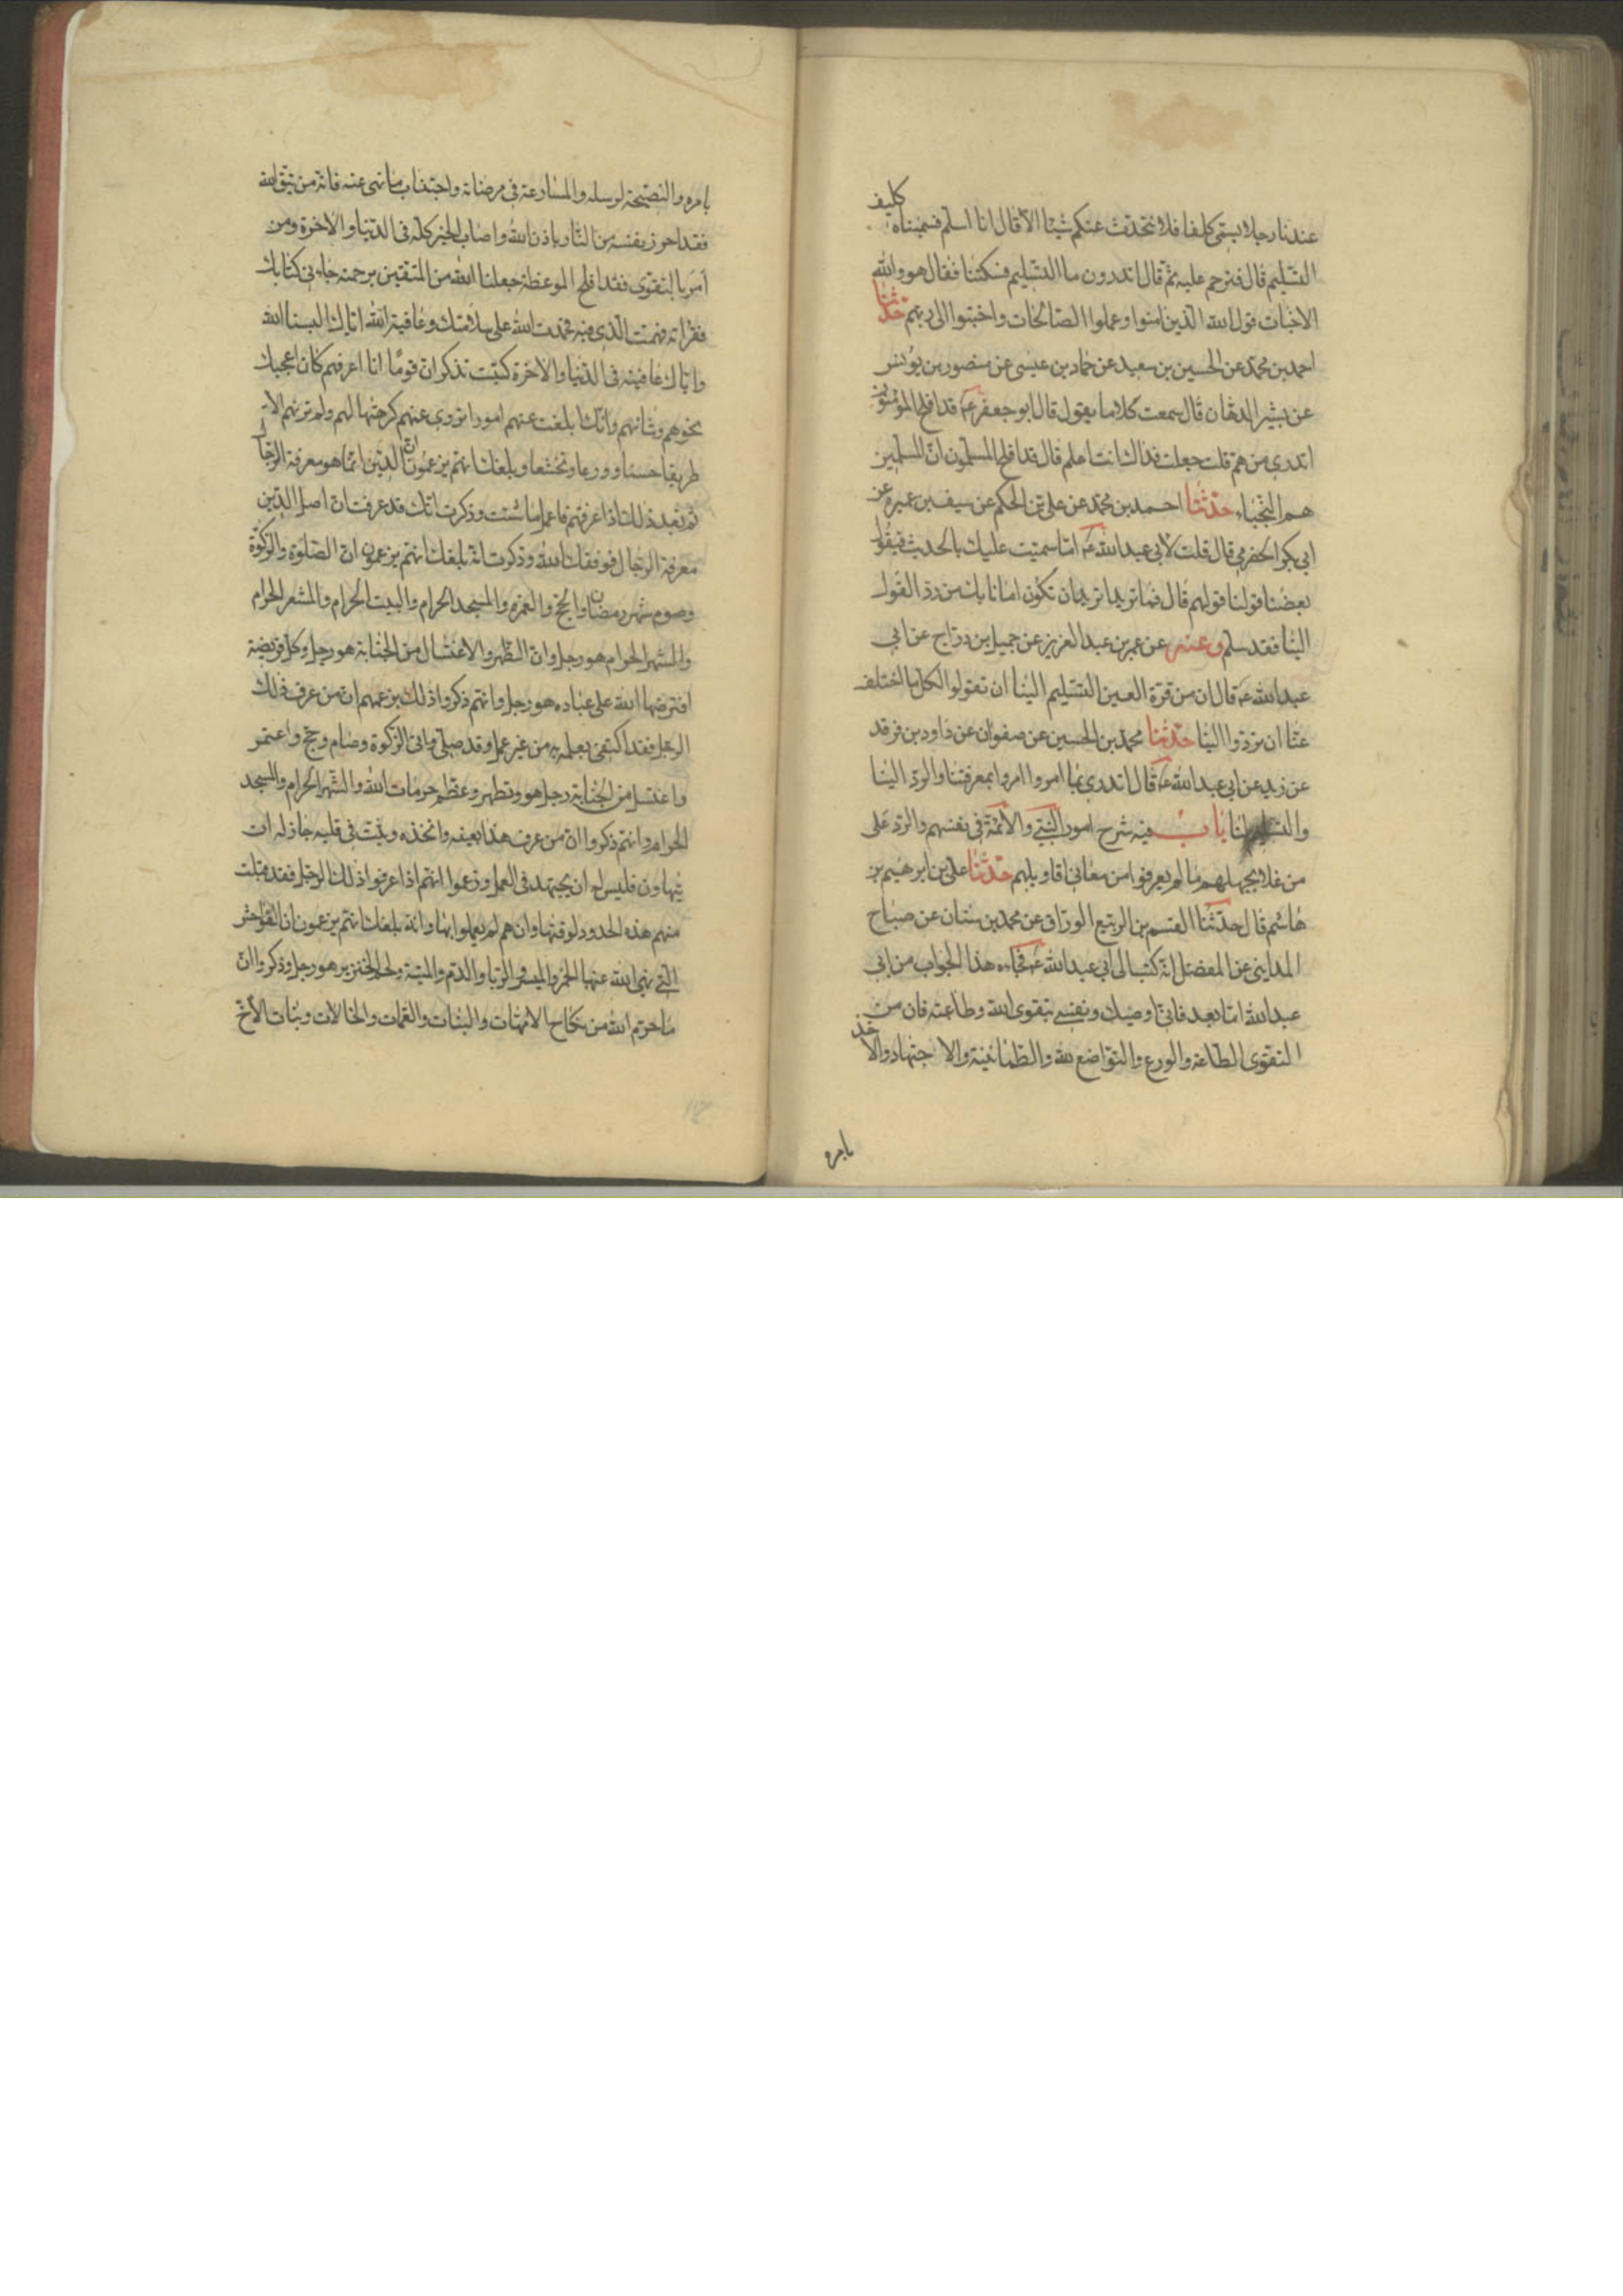 عندنا رجلا يسمى كليفا فلا نتحدث عنكم شيئا الا قال انا اسلم فسميناه كليف
التسليم قال فترحم عليه ثم قال اتدرون ما التسليم فسكتنا فقال هو والله
الاخبات قول الله الذين امنوا وعملوا الصالحات واخبتوا الى ربهم حدثنا
احمد بن محمد عن الحسين بن سعيد عن حماد بن عيسى عن منصور بن يونس
عن بشير الدهان قال سمعت كلاما يقول قال ابو جعفر ع قد افلح المؤمنون
اتدري من هم قلت جعلت فداك انت اعلم قال قد افلح المسلمون ان المسلمين
هم النجباء حدثنا احمد بن محمد عن علي بن الحكم عن سيف بن عميرة عن
ابي بكر الحضرمي قال قلت لابي عبد الله ع اما سميت عليك بالحديث فيقول
بعضنا قولنا قولهم قال فما تريد اتريد ان تكون اماما بك من رد القول
الينا فقد سلم وعنه عن عمر بن عبد العزيز عن جميل بن دراج عن ابي
عبد الله ع قال ان من قرة العين التسليم الينا ان تقولوا لكل ما اختلف
عنا ان تردوا الينا حدثنا محمد بن الحسين عن صفوان عن داود بن فرقد
عن زيد عن ابي عبد الله ع قال اتدري بما امروا امروا بمعرفتنا والرد الينا
والتسليم لنا باب فيه شرح امور النبي والائمة في نفسهم والرد على
من غلا بجهلهم ما لم يعرفوا من معاني اقاويلهم حدثنا علي بن ابرهيم بن
هاشم قال حدثنا القسم بن الربيع الوراق عن محمد بن سنان عن صباح
المدايني عن المفضل انه كتب الى ابي عبد الله ع فجاءه هذا الجواب من ابي
عبد الله اما بعد فاني اوصيك ونفسي بتقوى الله وطاعته فان من
التقوى الطاعة والورع والتواضع لله والطمانينة والاجتهاد والاخذ
بامره
بامره والنصيحة لرسله والمسارعة في مرضاته واجتناب ما نهى عنه فانه من يتق الله
فقد احرز نفسه من النار باذن الله واصاب الخير كله في الدنيا والاخرة ومن
امر بالتقوى فقد افلح الموعظة جعلنا الله من المتقين برحمته جاءني كتابك
فقراته وفهمت الذي فيه فحمدت الله على سلامتك وعافية الله اياك البسنا الله
واياك عافيته في الدنيا والاخرة كتبت تذكر ان قوما انا اعرفهم كان اعجبك
نحوهم وشانهم وانك ابلغت عنهم امورا تروى عنهم كرهتها لهم ولم تر بهم الا
طريقا حسنا وورعا وتخشعا وبلغك انهم يزعمون ان الدين انما هو معرفة الرجال
ثم بعد ذلك اذا عرفتهم فاعمل ما شئت وذكرت انك قد عرفت ان اصل الدين
معرفة الرجال فوفقك الله وذكرت انه بلغك انهم يزعمون ان الصلوة والزكوة
وصوم شهر رمضان والحج والعمرة والمسجد الحرام والبيت الحرام والمشعر الحرام
والشهر الحرام هو رجل وان الطهر والاغتسال من الجنابة هو رجل وكل فريضة
افترضها الله على عباده هو رجل وانهم ذكروا ذلك بزعمهم ان من عرف ذلك
الرجل فقد اكتفى بعلمه به من غير عمل وقد صلى واتى الزكوة وصام وحج واعتمر
واغتسل من الجنابة وتطهر وعظم حرمات الله والشهر الحرام والمسجد
الحرام وانهم ذكروا ان من عرف هذا بعينه واتخذه وثبت في قلبه جاز له ان
يتهاون فليس له ان يجتهد في العمل وزعموا انهم اذا عرفوا ذلك الرجل فقد قبلت
منهم هذه الحدود لوقتها وان هم لم يعملوا بها وانه بلغك انهم يزعمون ان الفواحش
التي نهى الله عنها الخمر والميسر والربا والدم والميتة ولحم الخنزير هو رجل وذكروا ان
ما حرم الله من نكاح الامهات والبنات والعمات والخالات وبنات الاخ